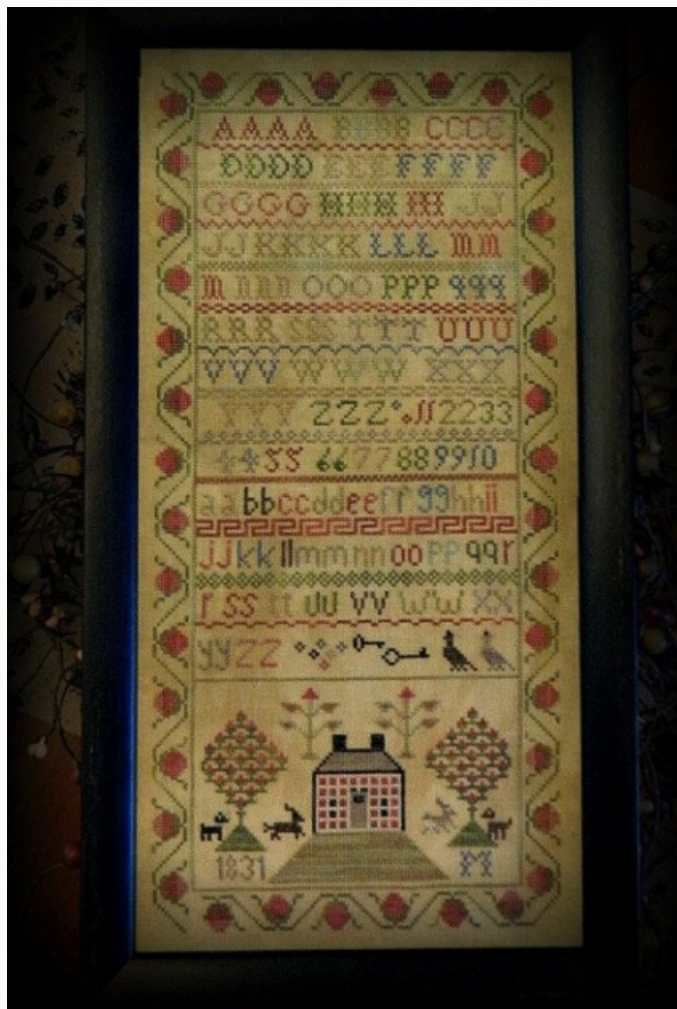 AAAA BBBB CCCC
DDDD EEE FFFF
GGGG HHH III JJ
JJ KKKK LLL MM
M nnn OOO PPP qqq
RRR SSS TTT UUU
VVV WWW XXX
YYY ZZZ 2233
55 66 77 88 99 10
aa bb cc dd ee ff gg hh ii
jj kk ll mm nn oo pp qq r
r ss tt uu vv ww xx
yy zz
1831 M